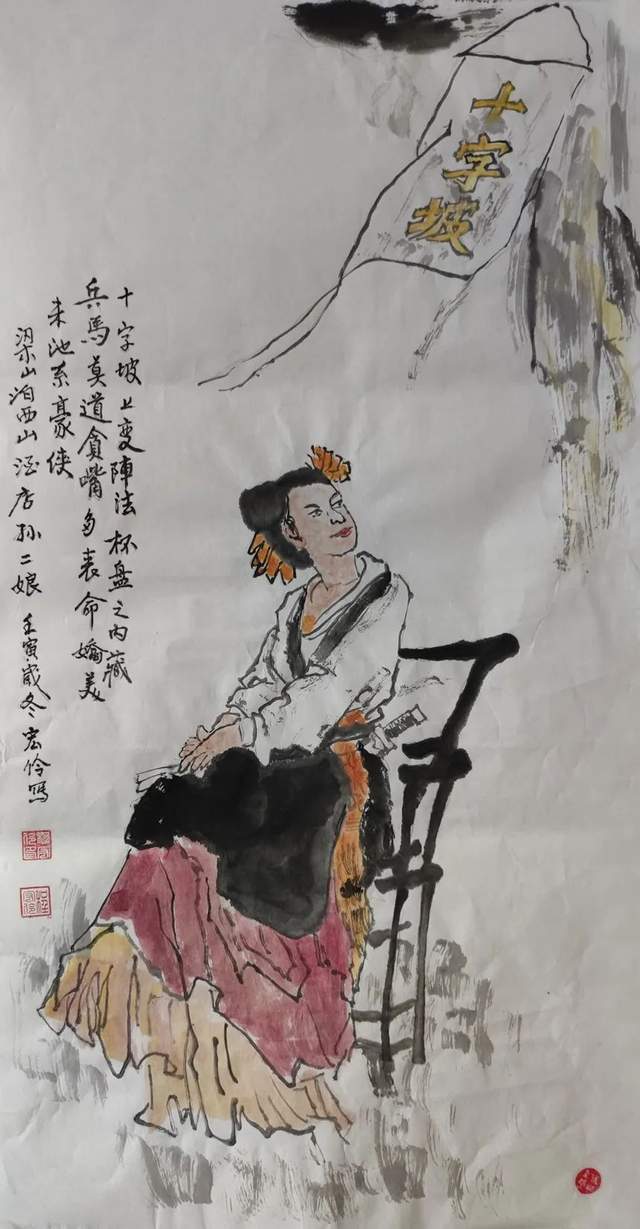 十字坡
十字坡上变陣法杯盘之内藏
兵馬莫道貪嘴多丧命嬌美
来池系豪侠
梁山泊西山酒店孙二娘壬寅歲冬宏伶写